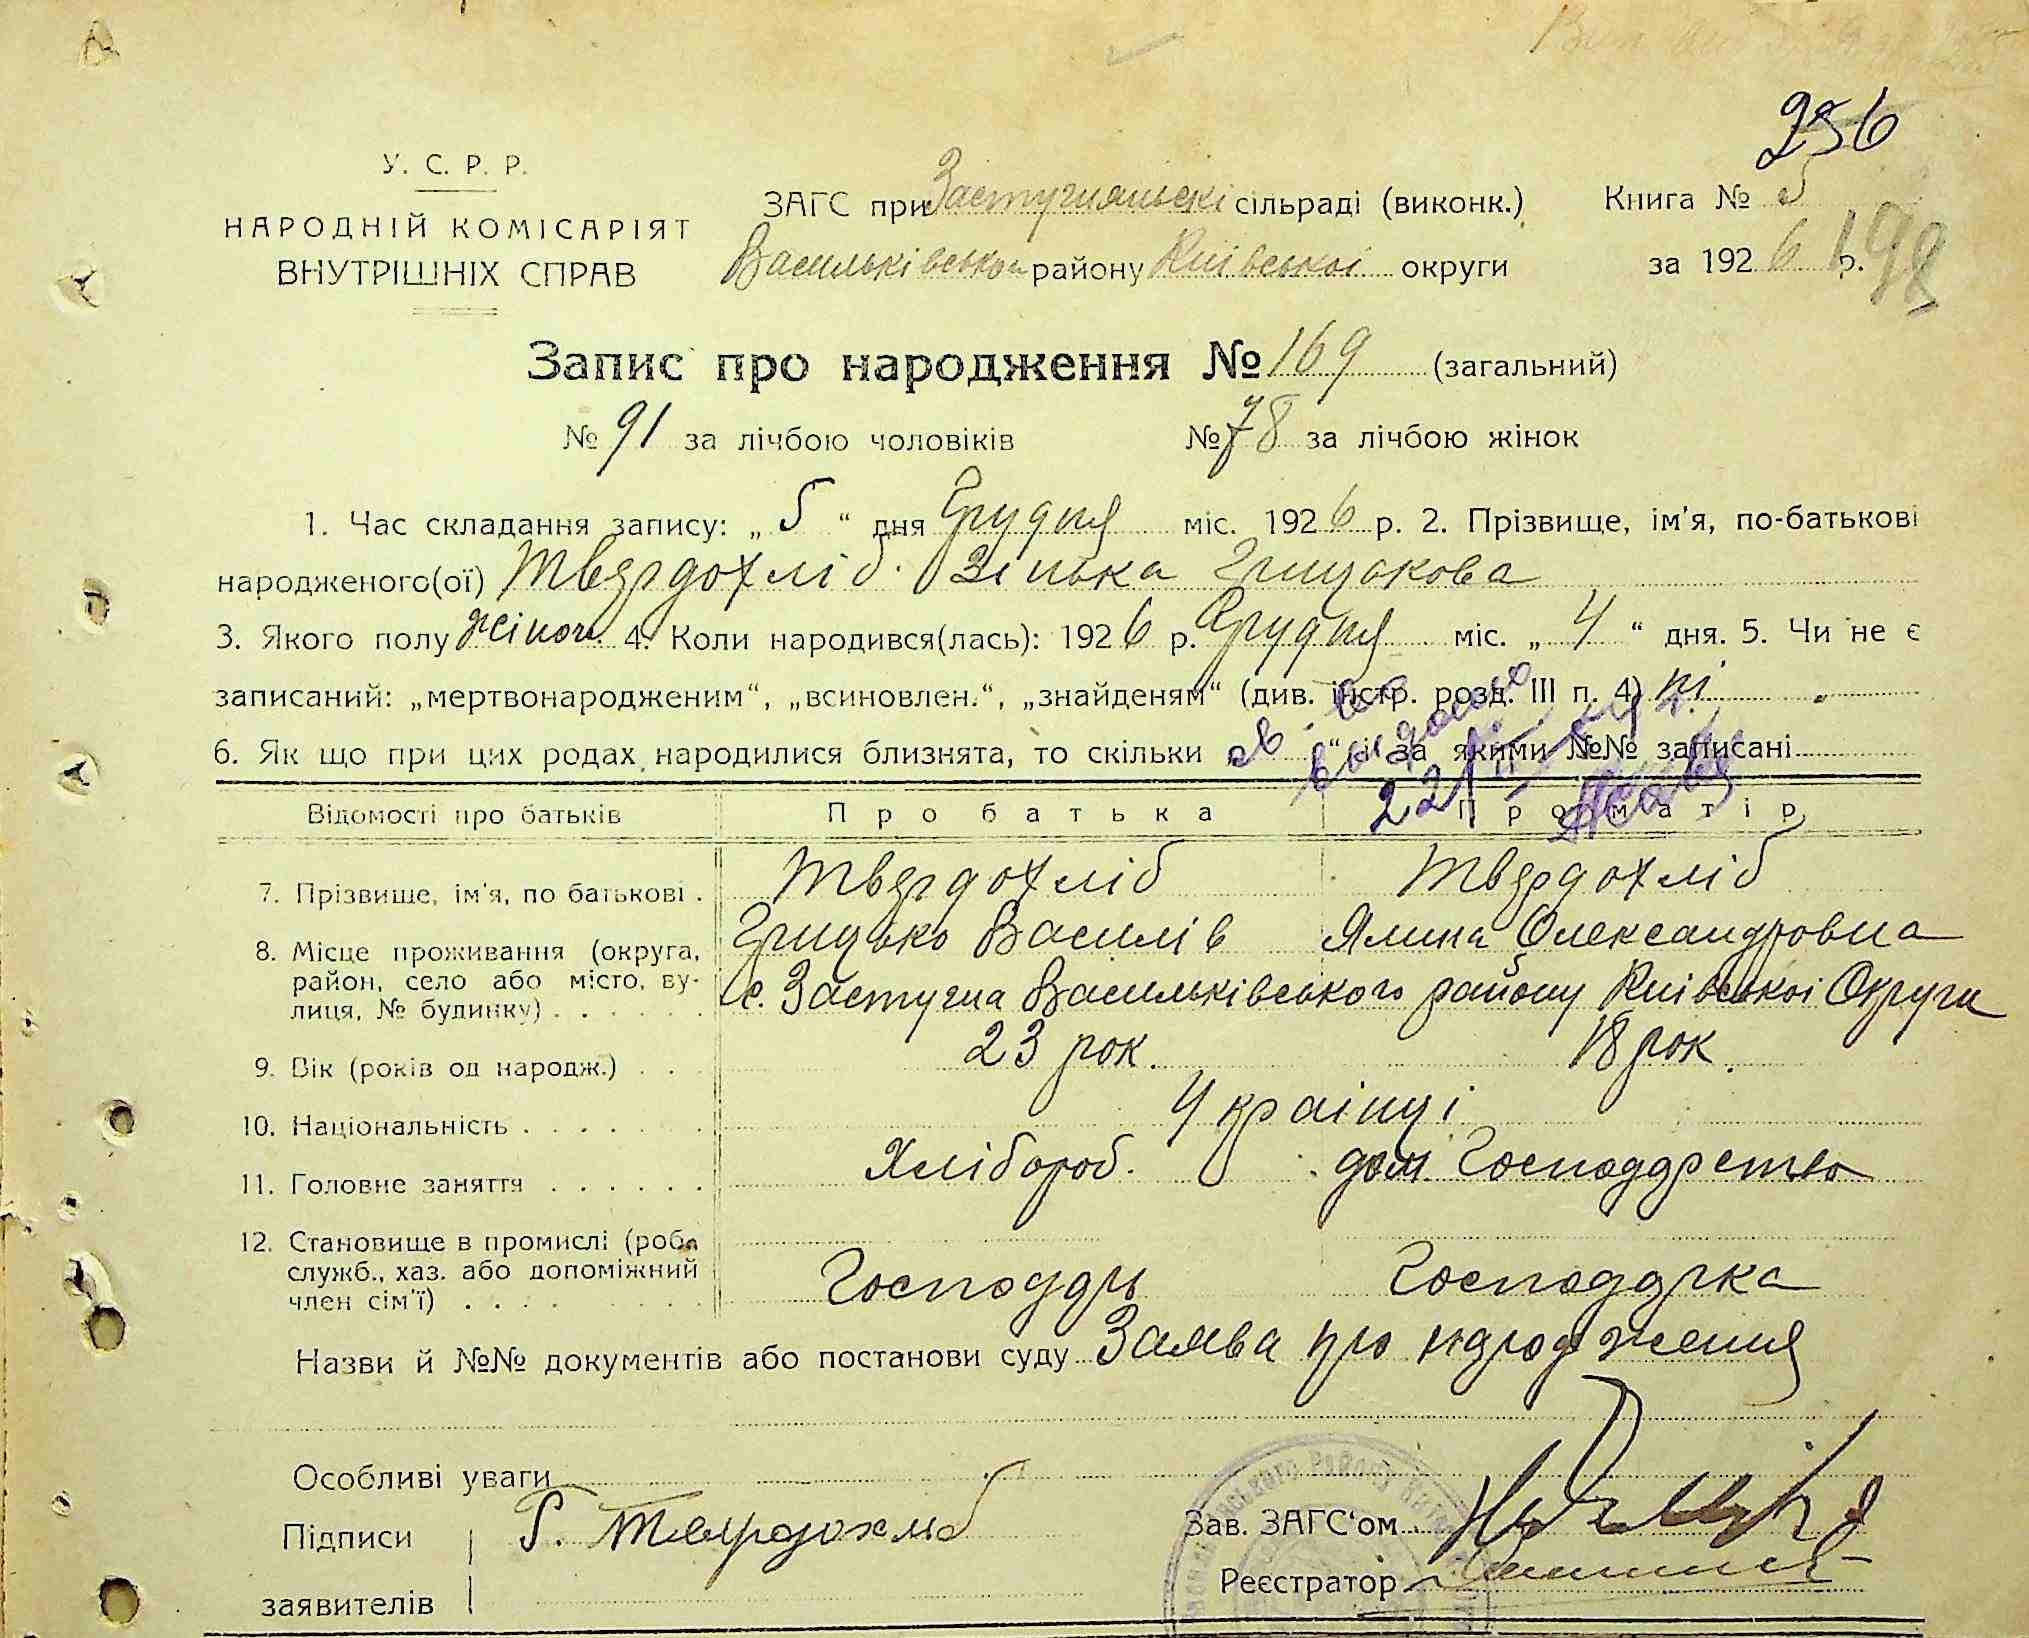 256
У. С. Р. Р.
НАРОДНІЙ КОМІСАРІЯТ
ВНУТРІШНІХ СПРАВ
ЗАГС при Застугнянські сільраді (виконк.)
Васильківського району Київської округи
Книга № 5
за 1926 р.
198
Запис про народження № 169 (загальний)
№ 91 за лічбою чоловіків № 78 за лічбою жінок
1. Час складання запису: „ 5 “ дня Грудня міс. 1926 р. 2. Прізвище, ім'я, по-батькові
народженого(ої) Твердохліб Зінька Грицькова
3. Якого полу жіноч. 4. Коли народився(лась): 1926 р. Грудня міс. „ 4 “ дня. 5. Чи не є
записаний: „мертвонародженим“, „всиновлен.“, „знайденям“ (див. інстр. розд. III п. 4) ні
6. Як що при цих родах народилися близнята, то скільки „ “ і за якими №№ записані
Відомості про батьків Про батька Про матір
7. Прізвище, ім'я, по батькові . Твердохліб Твердохліб
Грицько Василів Ялина Олександровна
8. Місце проживання (округа,
район, село або місто, ву-
лиця, № будинку) . . . . . . с. Застугна Васильківського району Київської Округи
9. Вік (років од народж.) . . 23 рок. 18 рок.
10. Національність . . . . . . . Українці
11. Головне заняття . . . . . . Хлібороб. дом. Господарство
12. Становище в промислі (роб.
служб., хаз. або допоміжний
член сім'ї) . . . . . . . . Господарь Господарка
Назви й №№ документів або постанови суду Заява про народження
Особливі уваги
Підписи
заявителів
Г. Твердохліб
Зав. ЗАГС'ом
Реєстратор